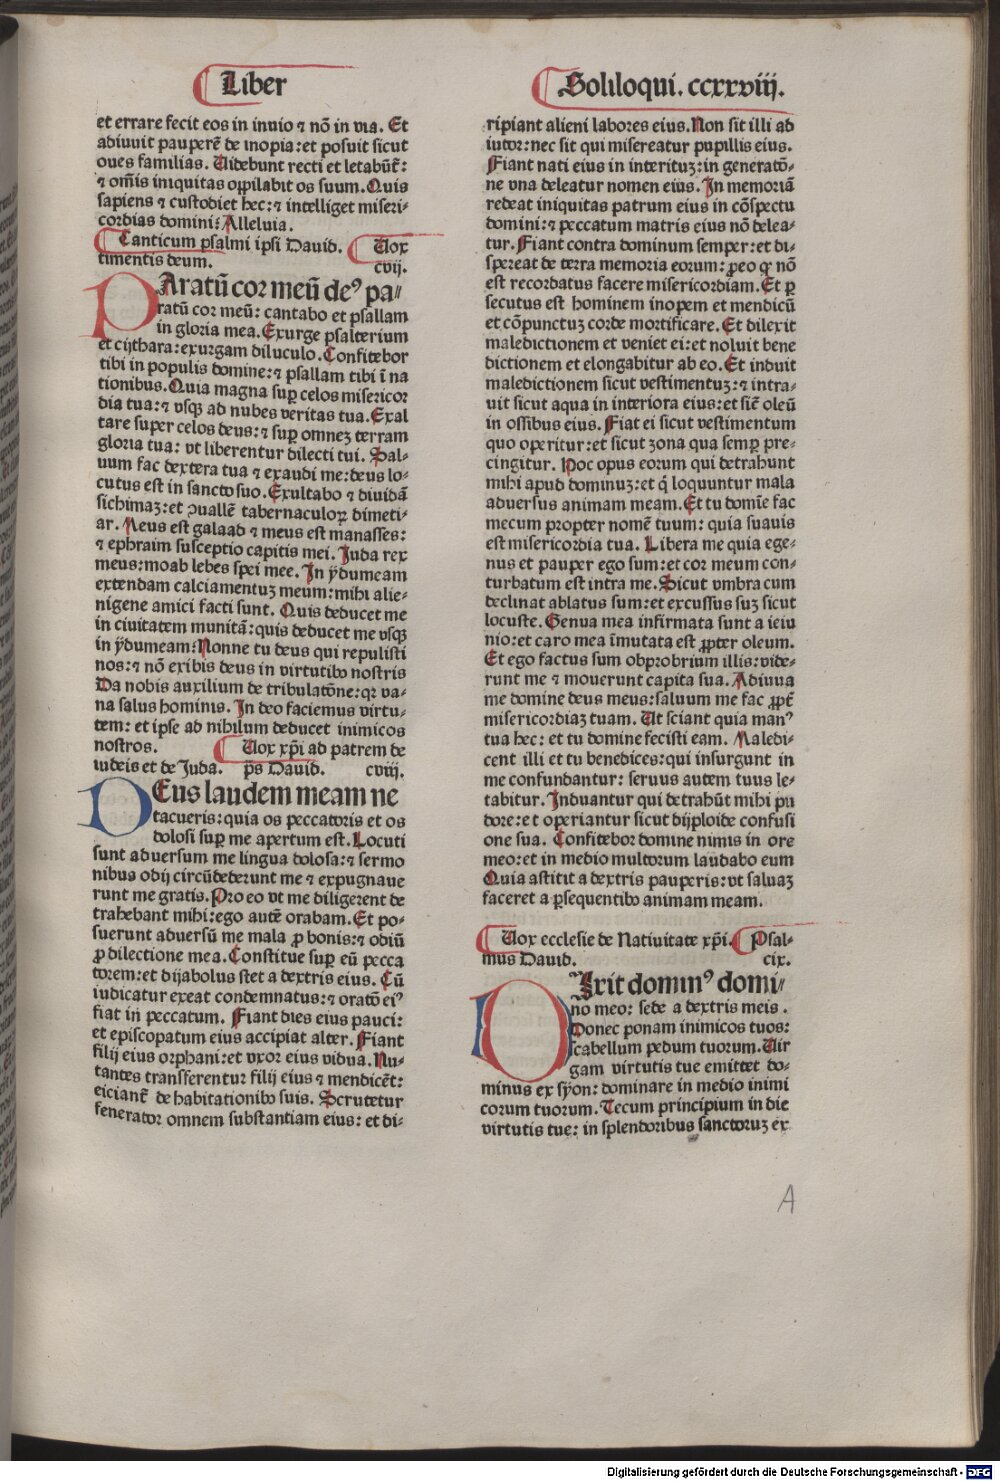 Liber
et errare fecit eos in inuio ⁊ nō in via. Et
adiuuit pauperē de inopia: et posuit sicut
oues familias. Uidebunt recti et letabūt̄:
⁊ om̄is iniquitas oppilabit os suum. Quis
sapiens ⁊ custodiet hec: ⁊ intelliget miseri-
cordias domini? Alleluia.
Canticum psalmi ipsi Dauid. Uox
timentis deum. cvij.
PAratū cor meū deꝰ pa-
ratū cor meū: cantabo et psallam
in gloria mea. Exurge psalterium
et cijthara: exurgam diluculo. Confitebor
tibi in populis domine: ⁊ psallam tibi ī na
tionibus. Quia magna suꝑ celos misericor
dia tua: ⁊ vsqꝫ ad nubes veritas tua. Exal
tare super celos deus: ⁊ suꝑ omneꝫ terram
gloria tua: vt liberentur dilecti tui. Sal-
uum fac dextera tua ⁊ exaudi me: deus lo-
cutus est in sancto suo. Exultabo ⁊ diuidā
sichimaꝫ: et ꝯuallē tabernaculoꝝ dimeti-
ar. Meus est galaad ⁊ meus est manasses:
⁊ ephraim susceptio capitis mei. Juda rex
meus: moab lebes spei mee. In ydumeam
extendam calciamentuꝫ meum: mihi alie-
nigene amici facti sunt. Quis deducet me
in ciuitatem munitā: quis deducet me vsqꝫ
in ydumeam? Nonne tu deus qui repulisti
nos: ⁊ nō exibis deus in virtutibꝰ nostris
Da nobis auxilium de tribulatōne: qꝛ va-
na salus hominis. In deo faciemus virtu-
tem: et ipse ad nihilum deducet inimicos
nostros. Uox xp̄i ad patrem de
iudeis et de Juda. p̄s Dauid. cviij.
DEus laudem meam ne
tacueris: quia os peccatoris et os
dolosi suꝑ me apertum est. Locuti
sunt aduersum me lingua dolosa: ⁊ sermo
nibus odij circūdederunt me ⁊ expugnaue
runt me gratis. Pro eo vt me diligerent de
trahebant mihi: ego autē orabam. Et po-
suerunt aduersū me mala ꝓ bonis: ⁊ odiū
ꝓ dilectione mea. Constitue suꝑ eū pecca
torem: et dijabolus stet a dextris eius. Cū
iudicatur exeat condemnatus: ⁊ oratō eiꝰ
fiat in peccatum. Fiant dies eius pauci:
et episcopatum eius accipiat alter. Fiant
filij eius orphani: et vxor eius vidua. Nu-
tantes transferentur filij eius ⁊ mendicēt:
eiciant̄ de habitationibꝰ suis. Scrutetur
fenerator omnem substantiam eius: et di-
Soliloqui. ccxxviij.
ripiant alieni labores eius. Non sit illi ad
iutor: nec sit qui misereatur pupillis eius.
Fiant nati eius in interituꝫ: in generatō-
ne vna deleatur nomen eius. In memoriā
redeat iniquitas patrum eius in cōspectu
domini: ⁊ peccatum matris eius nō delea-
tur. Fiant contra dominum semper: et di-
spereat de terra memoria eorum: ꝓeo qꝙ nō
est recordatus facere misericordiam. Et ꝑ
secutus est hominem inopem et mendicū
et cōpunctuꝫ corde mortificare. Et dilexit
maledictionem et veniet ei: et noluit bene
dictionem et elongabitur ab eo. Et induit
maledictionem sicut vestimentuꝫ: ⁊ intra-
uit sicut aqua in interiora eius: et sic̄ oleū
in ossibus eius. Fiat ei sicut vestimentum
quo operitur: et sicut zona qua semꝑ pre-
cingitur. Hoc opus eorum qui detrahunt
mihi apud dominuꝫ: et q̄ loquuntur mala
aduersus animam meam. Et tu domīe fac
mecum propter nomē tuum: quia suauis
est misericordia tua. Libera me quia ege-
nus et pauper ego sum: et cor meum con-
turbatum est intra me. Sicut vmbra cum
declinat ablatus sum: et excussus suꝫ sicut
locuste. Genua mea infirmata sunt a ieiu
nio: et caro mea īmutata est ꝓpter oleum.
Et ego factus sum obprobrium illis: vide-
runt me ⁊ mouerunt capita sua. Adiuua
me domine deus meus: saluum me fac ꝓpt̄
misericordiaꝫ tuam. Ut sciant quia manꝰ
tua hec: et tu domine fecisti eam. Maledi-
cent illi et tu benedices: qui insurgunt in
me confundantur: seruus autem tuus le-
tabitur. Induantur qui detrahūt mihi pu
dore: et operiantur sicut dijploide confusi
one sua. Confitebor domine nimis in ore
meo: et in medio multorum laudabo eum
Quia astitit a dextris pauperis: vt saluaꝫ
faceret a ꝑsequentibꝰ animam meam.
Uox ecclesie de Natiuitate xp̄i. Psal-
mus Dauid. cix.
DIxit dominꝰ domi-
no meo: sede a dextris meis.
Donec ponam inimicos tuos:
scabellum pedum tuorum. Uir
gam virtutis tue emittet do-
minus ex syon: dominare in medio inimi
corum tuorum. Tecum principium in die
virtutis tue: in splendoribus sanctoruꝫ ex
A
Digitalisierung gefördert durch die Deutsche Forschungsgemeinschaft - DFG